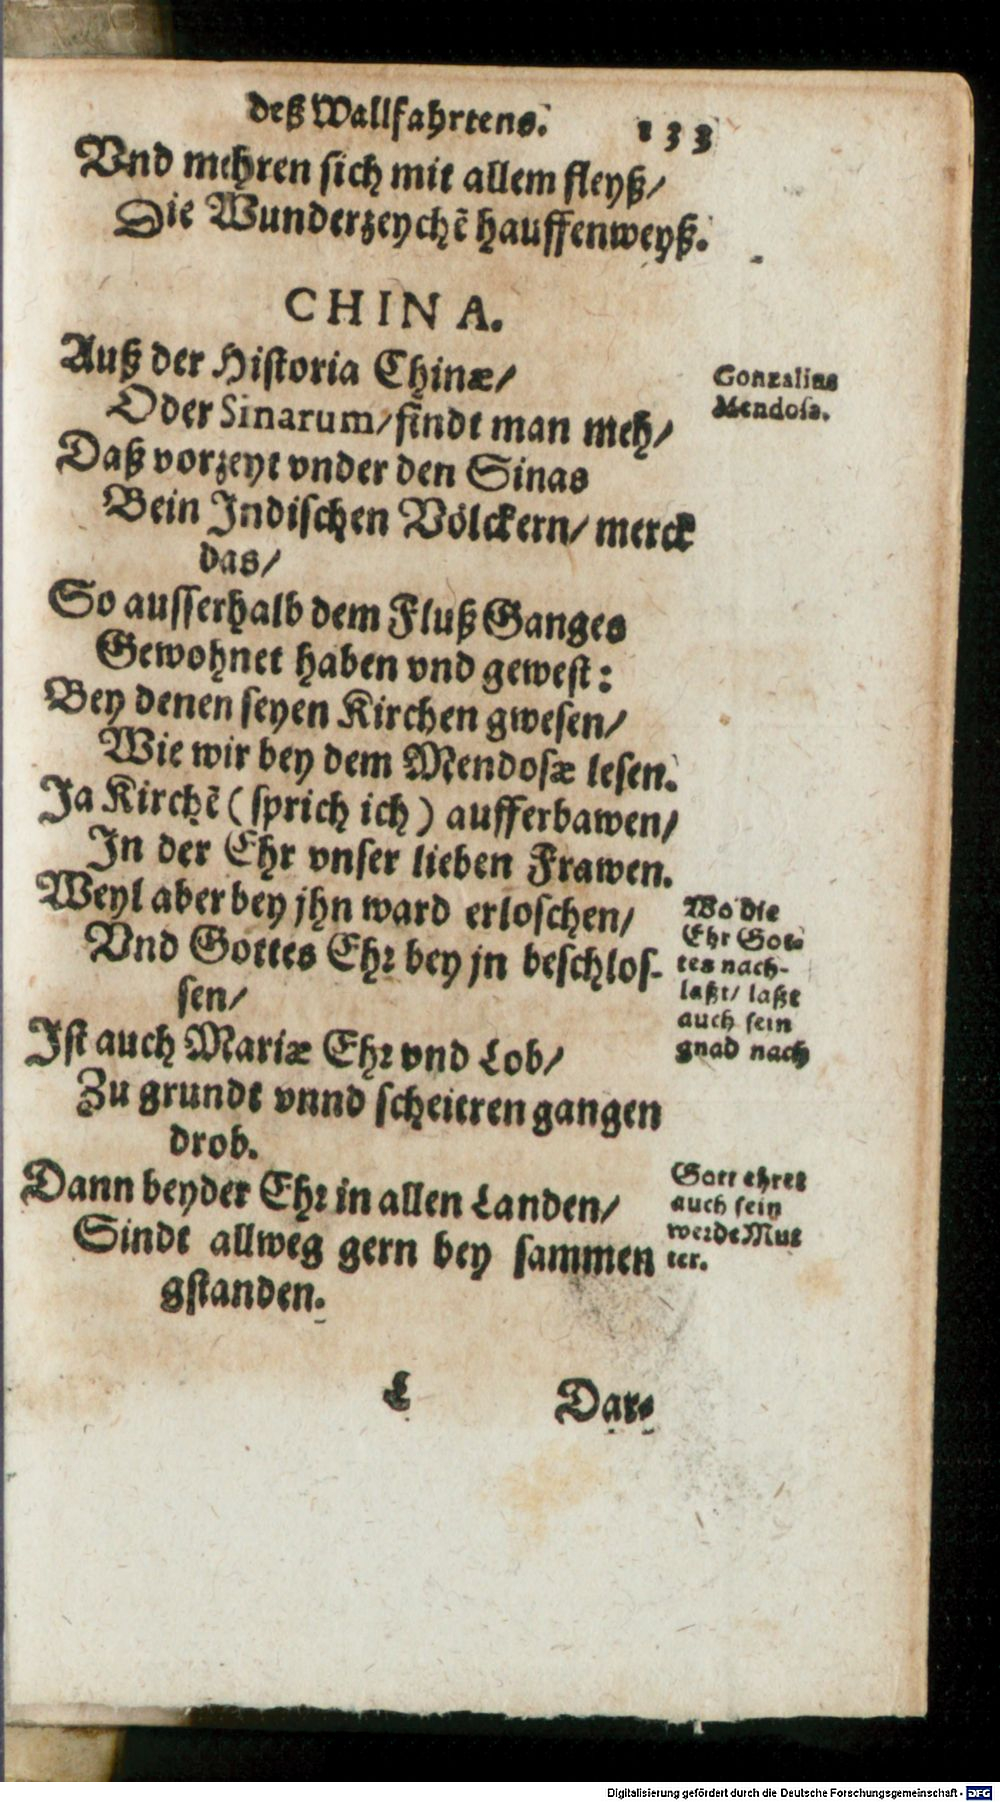 deß Wallfahrtens. 133
Vnd mehren sich mit allem fleyß/
Die Wunderzeychẽ hauffenweyß.
CHINA.
Auß der Historia Chinæ/
Oder Sinarum/ findt man meh/
Daß vorzeyt vnder den Sinas
Bein Indischen Völckern/ merck
das/
So ausserhalb dem Fluß Ganges
Gewohnet haben vnd gewest:
Bey denen seyen Kirchen gwesen/
Wie wir bey dem Mendosæ lesen.
Ja Kirchẽ (sprich ich) aufferbawen/
In der Ehr vnser lieben Frawen.
Weyl aber bey jhn ward erloschen/
Vnd Gottes Ehr bey jn beschlos-
sen/
Ist auch Mariæ Ehr vnd Lob/
Zu grundt vnnd scheiteren gangen
drob.
Dann beyder Ehr in allen Landen/
Sindt allweg gern bey sammen
gstanden.
Gonzalius
Mendosa.
Wo die
Ehr Got-
tes nach-
laßt/ laßt
auch sein
gnad nach
Gott ehret
auch sein
werde Mut
ter.
L Dar-
Digitalisierung gefördert durch die Deutsche Forschungsgemeinschaft - DFG